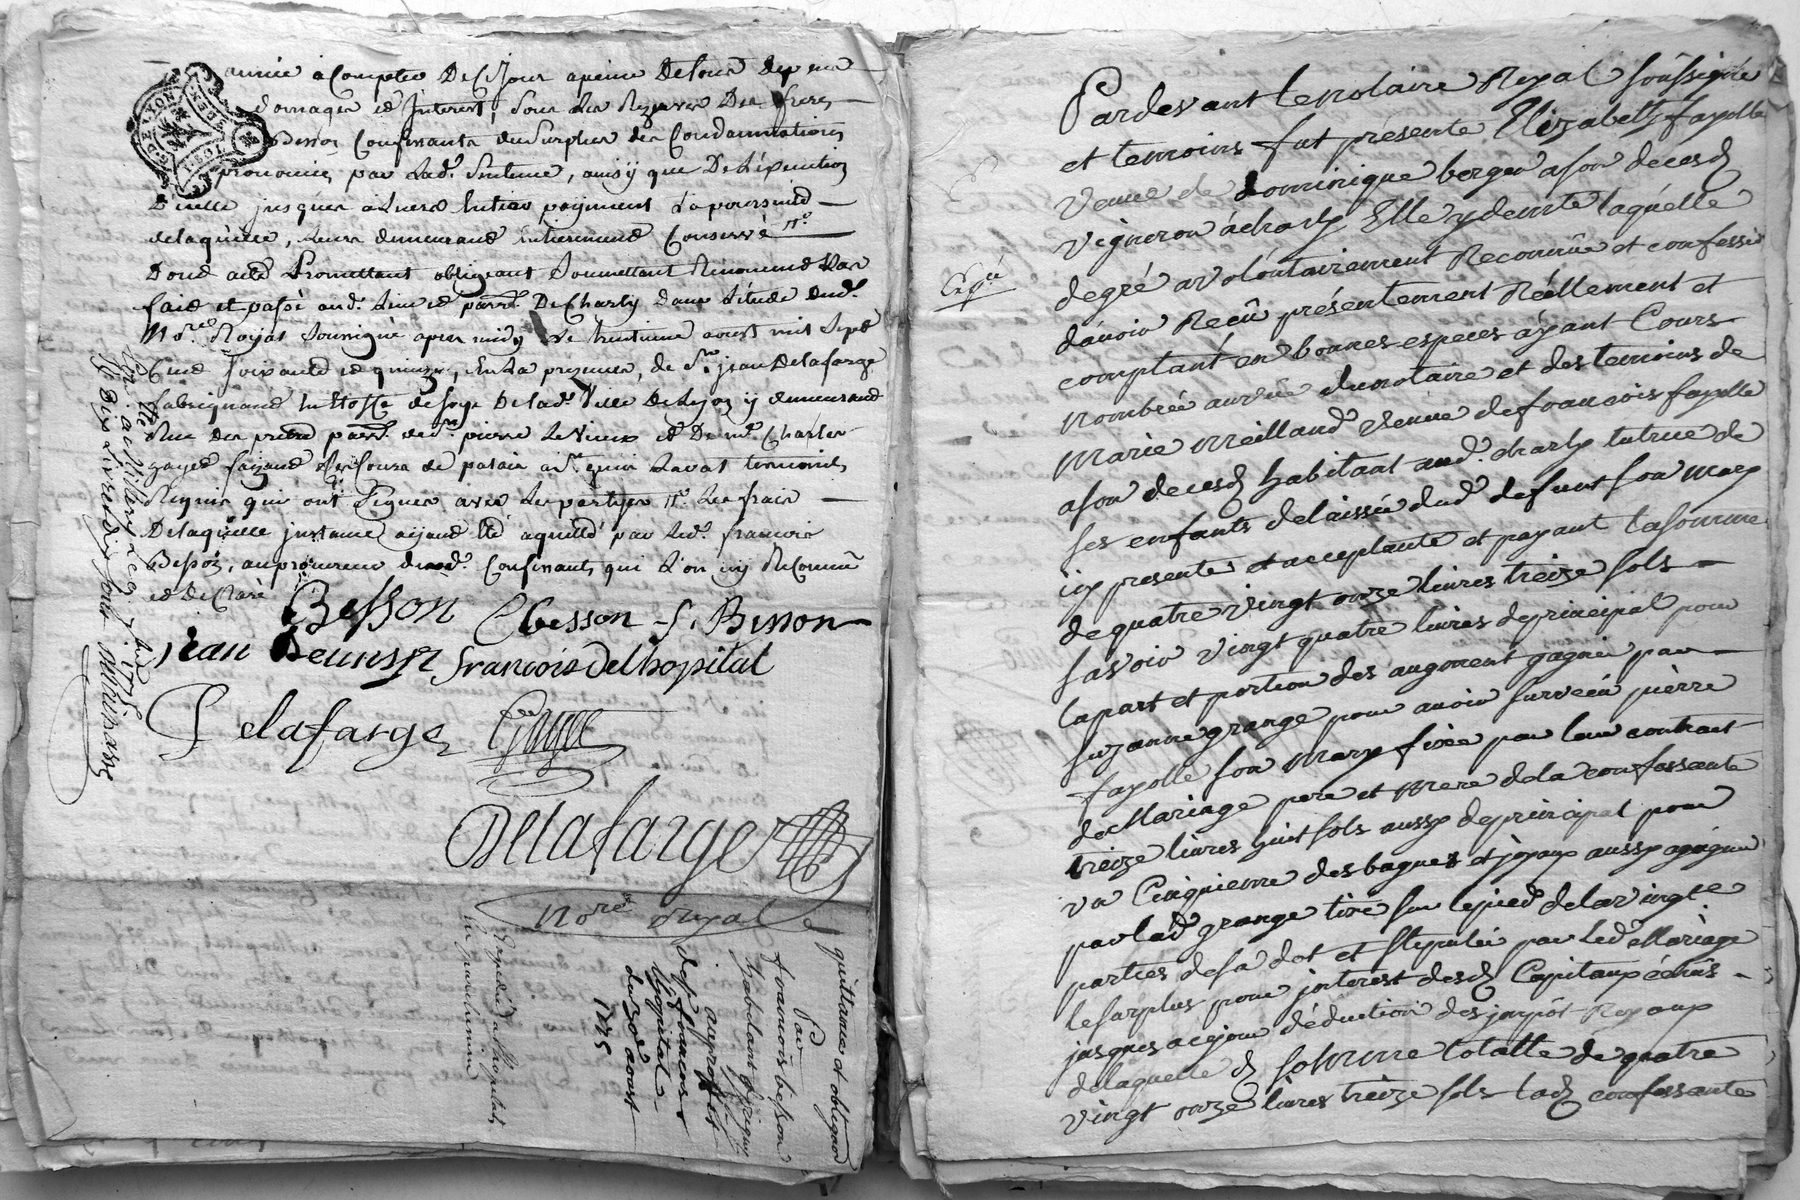 année a Compter De Ce Jour apeine De tous depens
domages et Interest, sous Les Rezerves Des freres
Besson Confinants du Surplus des Condamnations
prononcées par Lad. Sentence, ainsy que De L'éxecution
D'icelle jusques a Leur Entier payement La poursuitte
delaquelle, Leur demeurant Entierement Conservé
Dont acte Promettant obligeant Soumettant Renonceant
fait et passé aud. Lieu et parr. De Charly dans L'étude dud.
No.re Royal Soussigné apres midy Le trentieme aoust mil Sept
Cent soixante et quinze, En La presence, de S.r jean Delafarge
fabriquant En Etoffe de soye De Lad. Ville De Lyon y demeurant
Rue parr. de S.t pierre Le Vieux et De m.e Charles
gayet
Requis qui ont Signés avec Les parties Les frais
De laquelle instance ayant Eté aquitté par Led. francois
Besson, au procureur desd. Confinants, qui L'on icy Reconnu
et Declaré
Besson CBesson S. Besson
jean francois Delhopital
Delafarge Gayet
Delafarge
No.re Royal
G. DE LYON
Con.lé a Millery Le 7.bre 1775
dix sols
quittance et obligaõn
Par
francois besson
habitant
auproffit
de s.r francois
Lhopital
du 30e aoust
1775
Expedié a Lhopital
en parchemin
Pardevant le notaire Royal soussigné
et temoins fut présente Elizabeth fayolle
Veuve de Dominique berger a son deced
vigneron àcharly Elle y demte laquélle
degré a volontairement Reconnüe et confessé
dávoir Reçû présentement Réellement et
comptant en bonnes especes aÿant Cours
Nombrée auvue du notaire et des temoins de
Marie Meilland Veuve de francois fayolle
a son deced habitant aud. charly tutrice de
ses enfants delaissés dud defunt son mary
icy presente et acceptante et payant la somme
de quatre vingt onze livres treize sols
savoir vingt quatre livres de principal pour
la part et portion des augment gagnés par
suzanne grange pour avoir survecu pierre
fayolle son mary fixée par leur contract
de Mariage pere et Mere de la confessante
treize livres huit sols aussy de principal pour
un Cinquieme des bagues et joyaux aussy agagnés
par lad grange tiré sur le pied de la vingt.e
parties de sa dot et stipulés par led Mariage
le surplus pour interest desd Capitaux échûs
jusques acejour déduction des impôt Royaux
de laquelle d somme totalle de quatre
vingt onze livres treize sols lad confessante